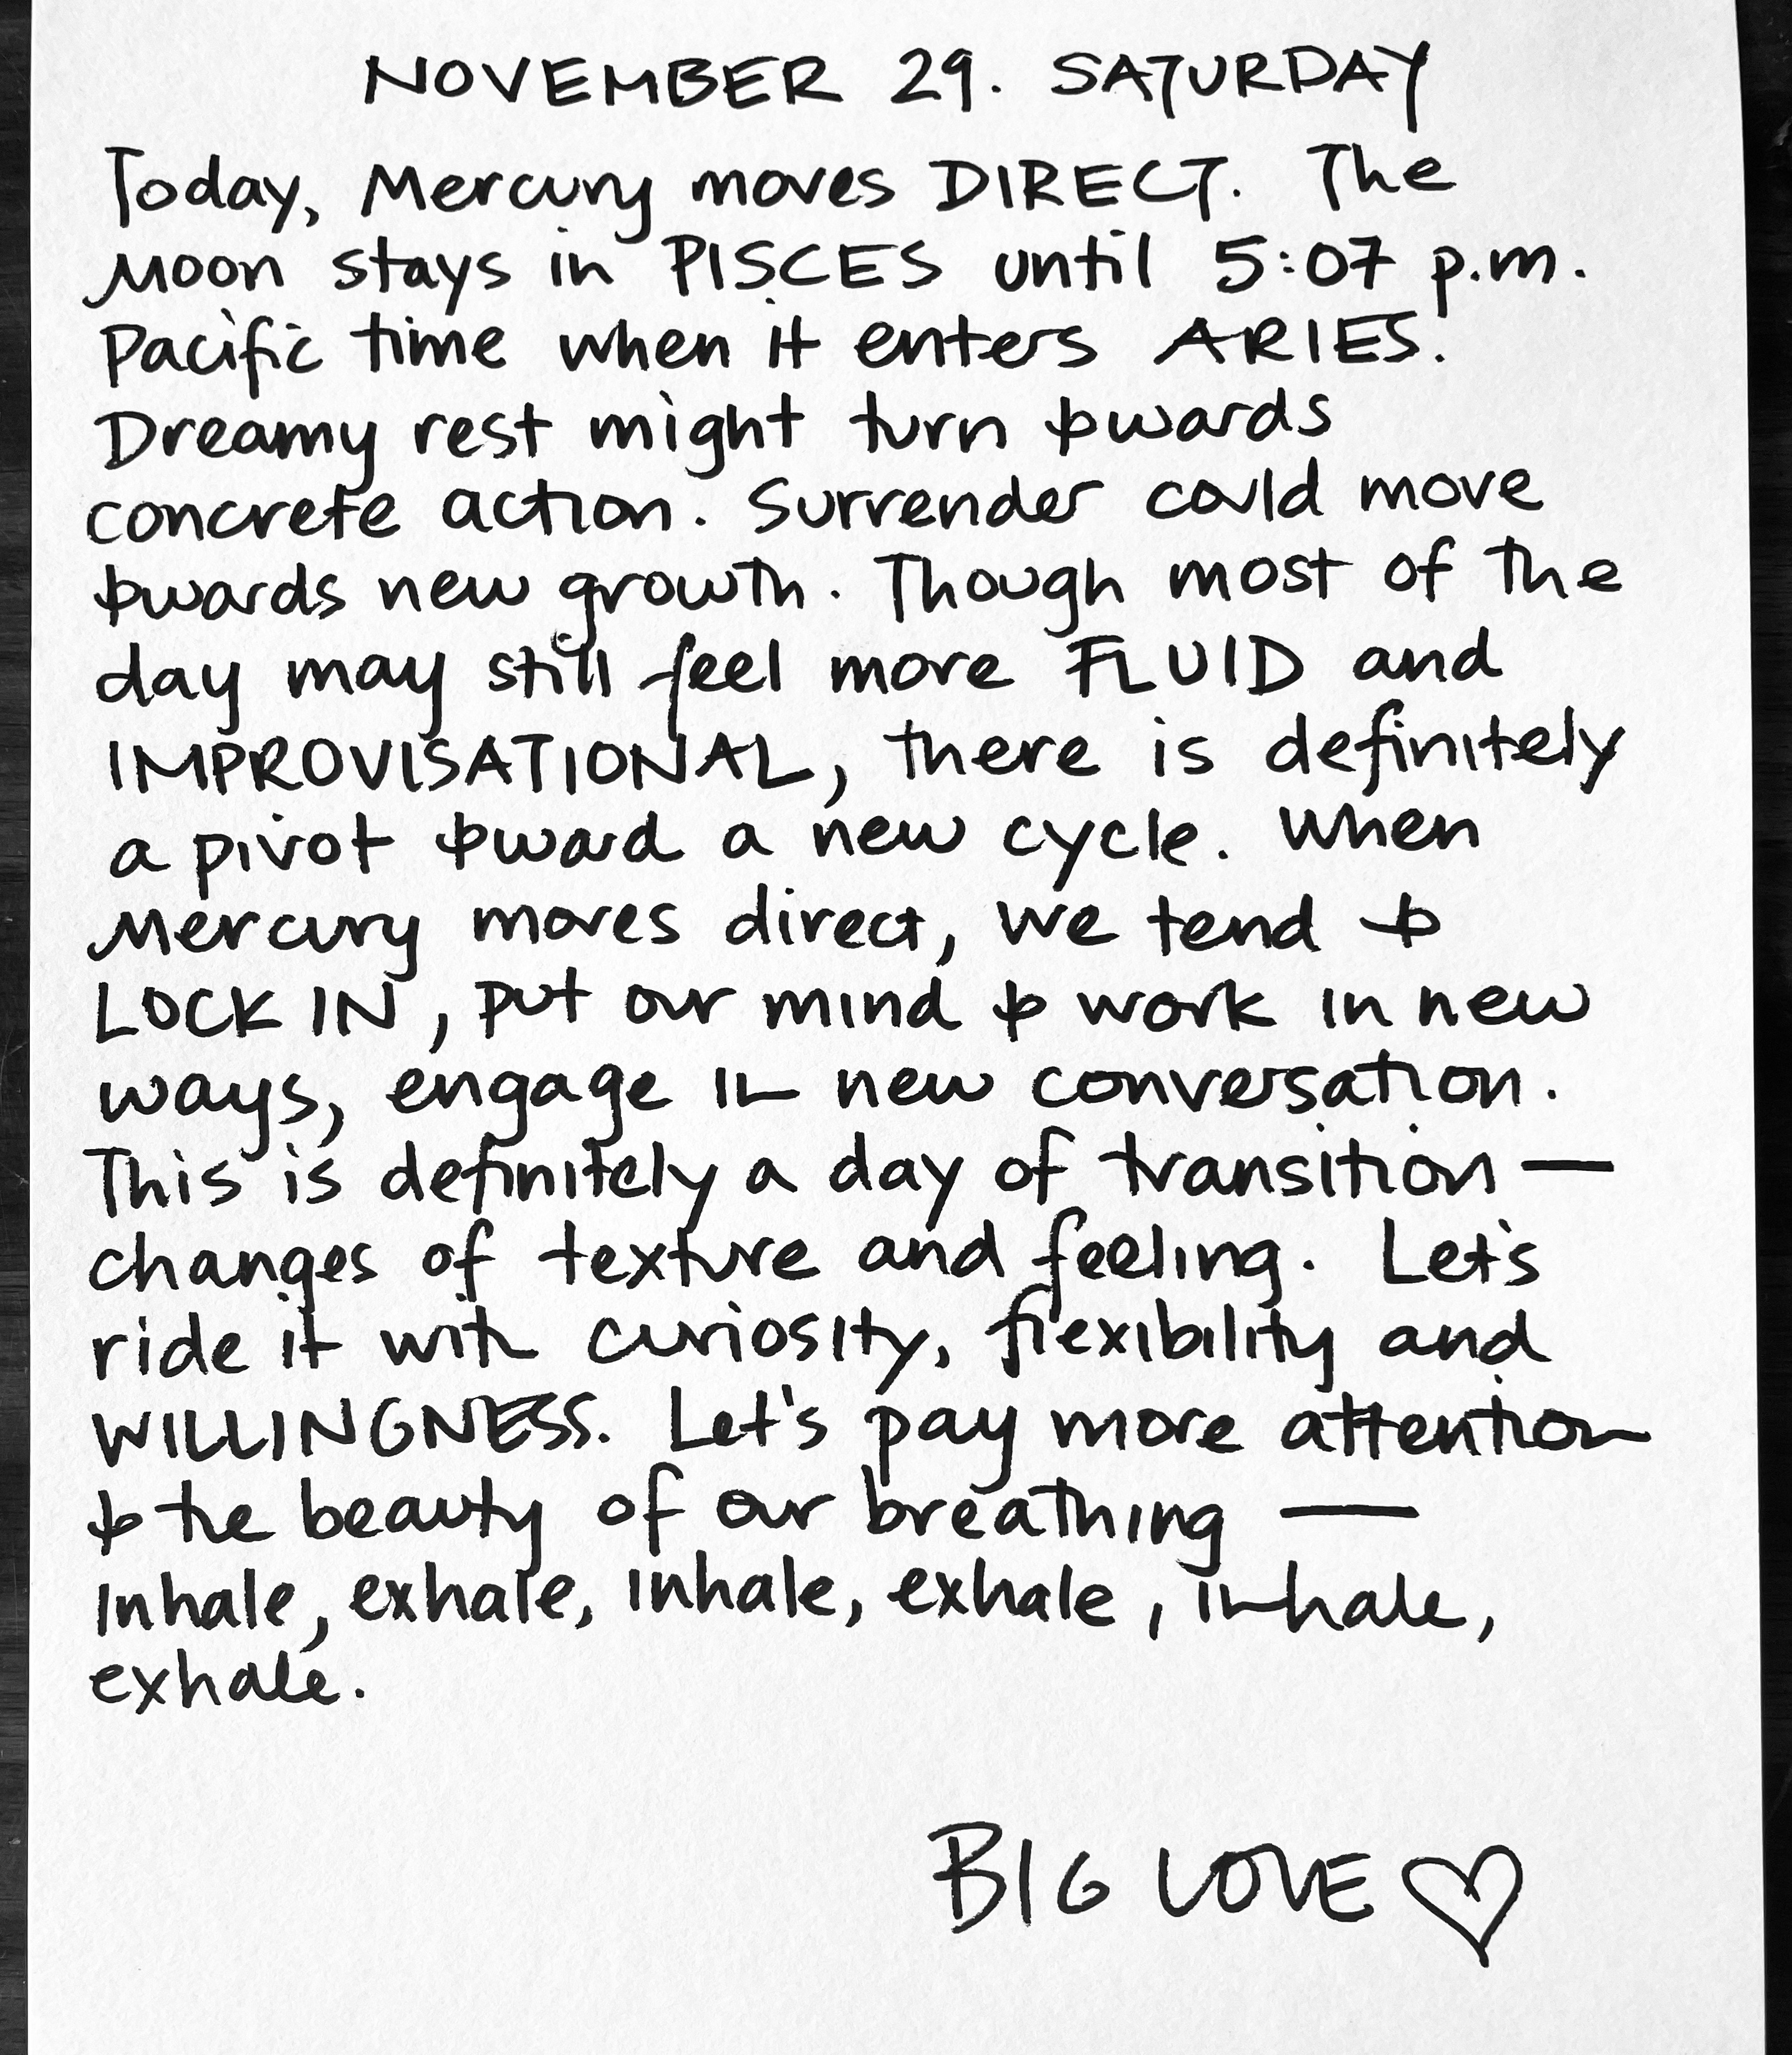 NOVEMBER 29. SATURDAY
Today, Mercury moves DIRECT. The
Moon stays in PISCES until 5:07 p.m.
Pacific time when it enters ARIES.
Dreamy rest might turn towards
concrete action. Surrender could move
towards new growth. Though most of the
day may still feel more FLUID and
IMPROVISATIONAL, there is definitely
a pivot toward a new cycle. When
Mercury moves direct, we tend to
LOCK IN, put our mind to work in new
ways, engage in new conversation.
This is definitely a day of transition —
changes of texture and feeling. Let's
ride it with curiosity, flexibility and
WILLINGNESS. Let's pay more attention
to the beauty of our breathing —
Inhale, exhale, inhale, exhale, inhale,
exhale.
BIG LOVE ♡